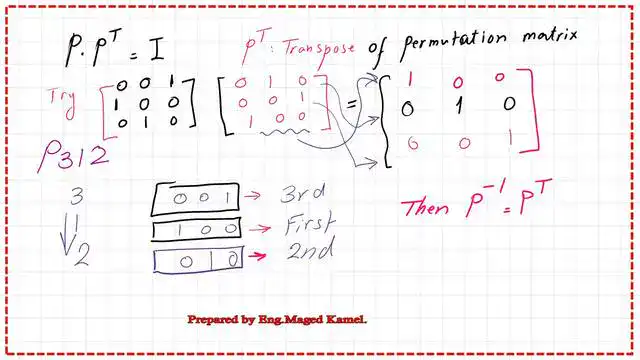 P.Pᵀ = I
Pᵀ: Transpose of permutation matrix
Try [0 0 1] [0 1 0] = [1 0 0]
[1 0 0] [0 0 1] [0 1 0]
[0 1 0] [1 0 0] [0 0 1]
P312
3 0 0 1 → 3rd
1 1 0 0 → First
2 0 1 0 → 2nd
Then P⁻¹ = Pᵀ
Prepared by Eng.Maged Kamel.